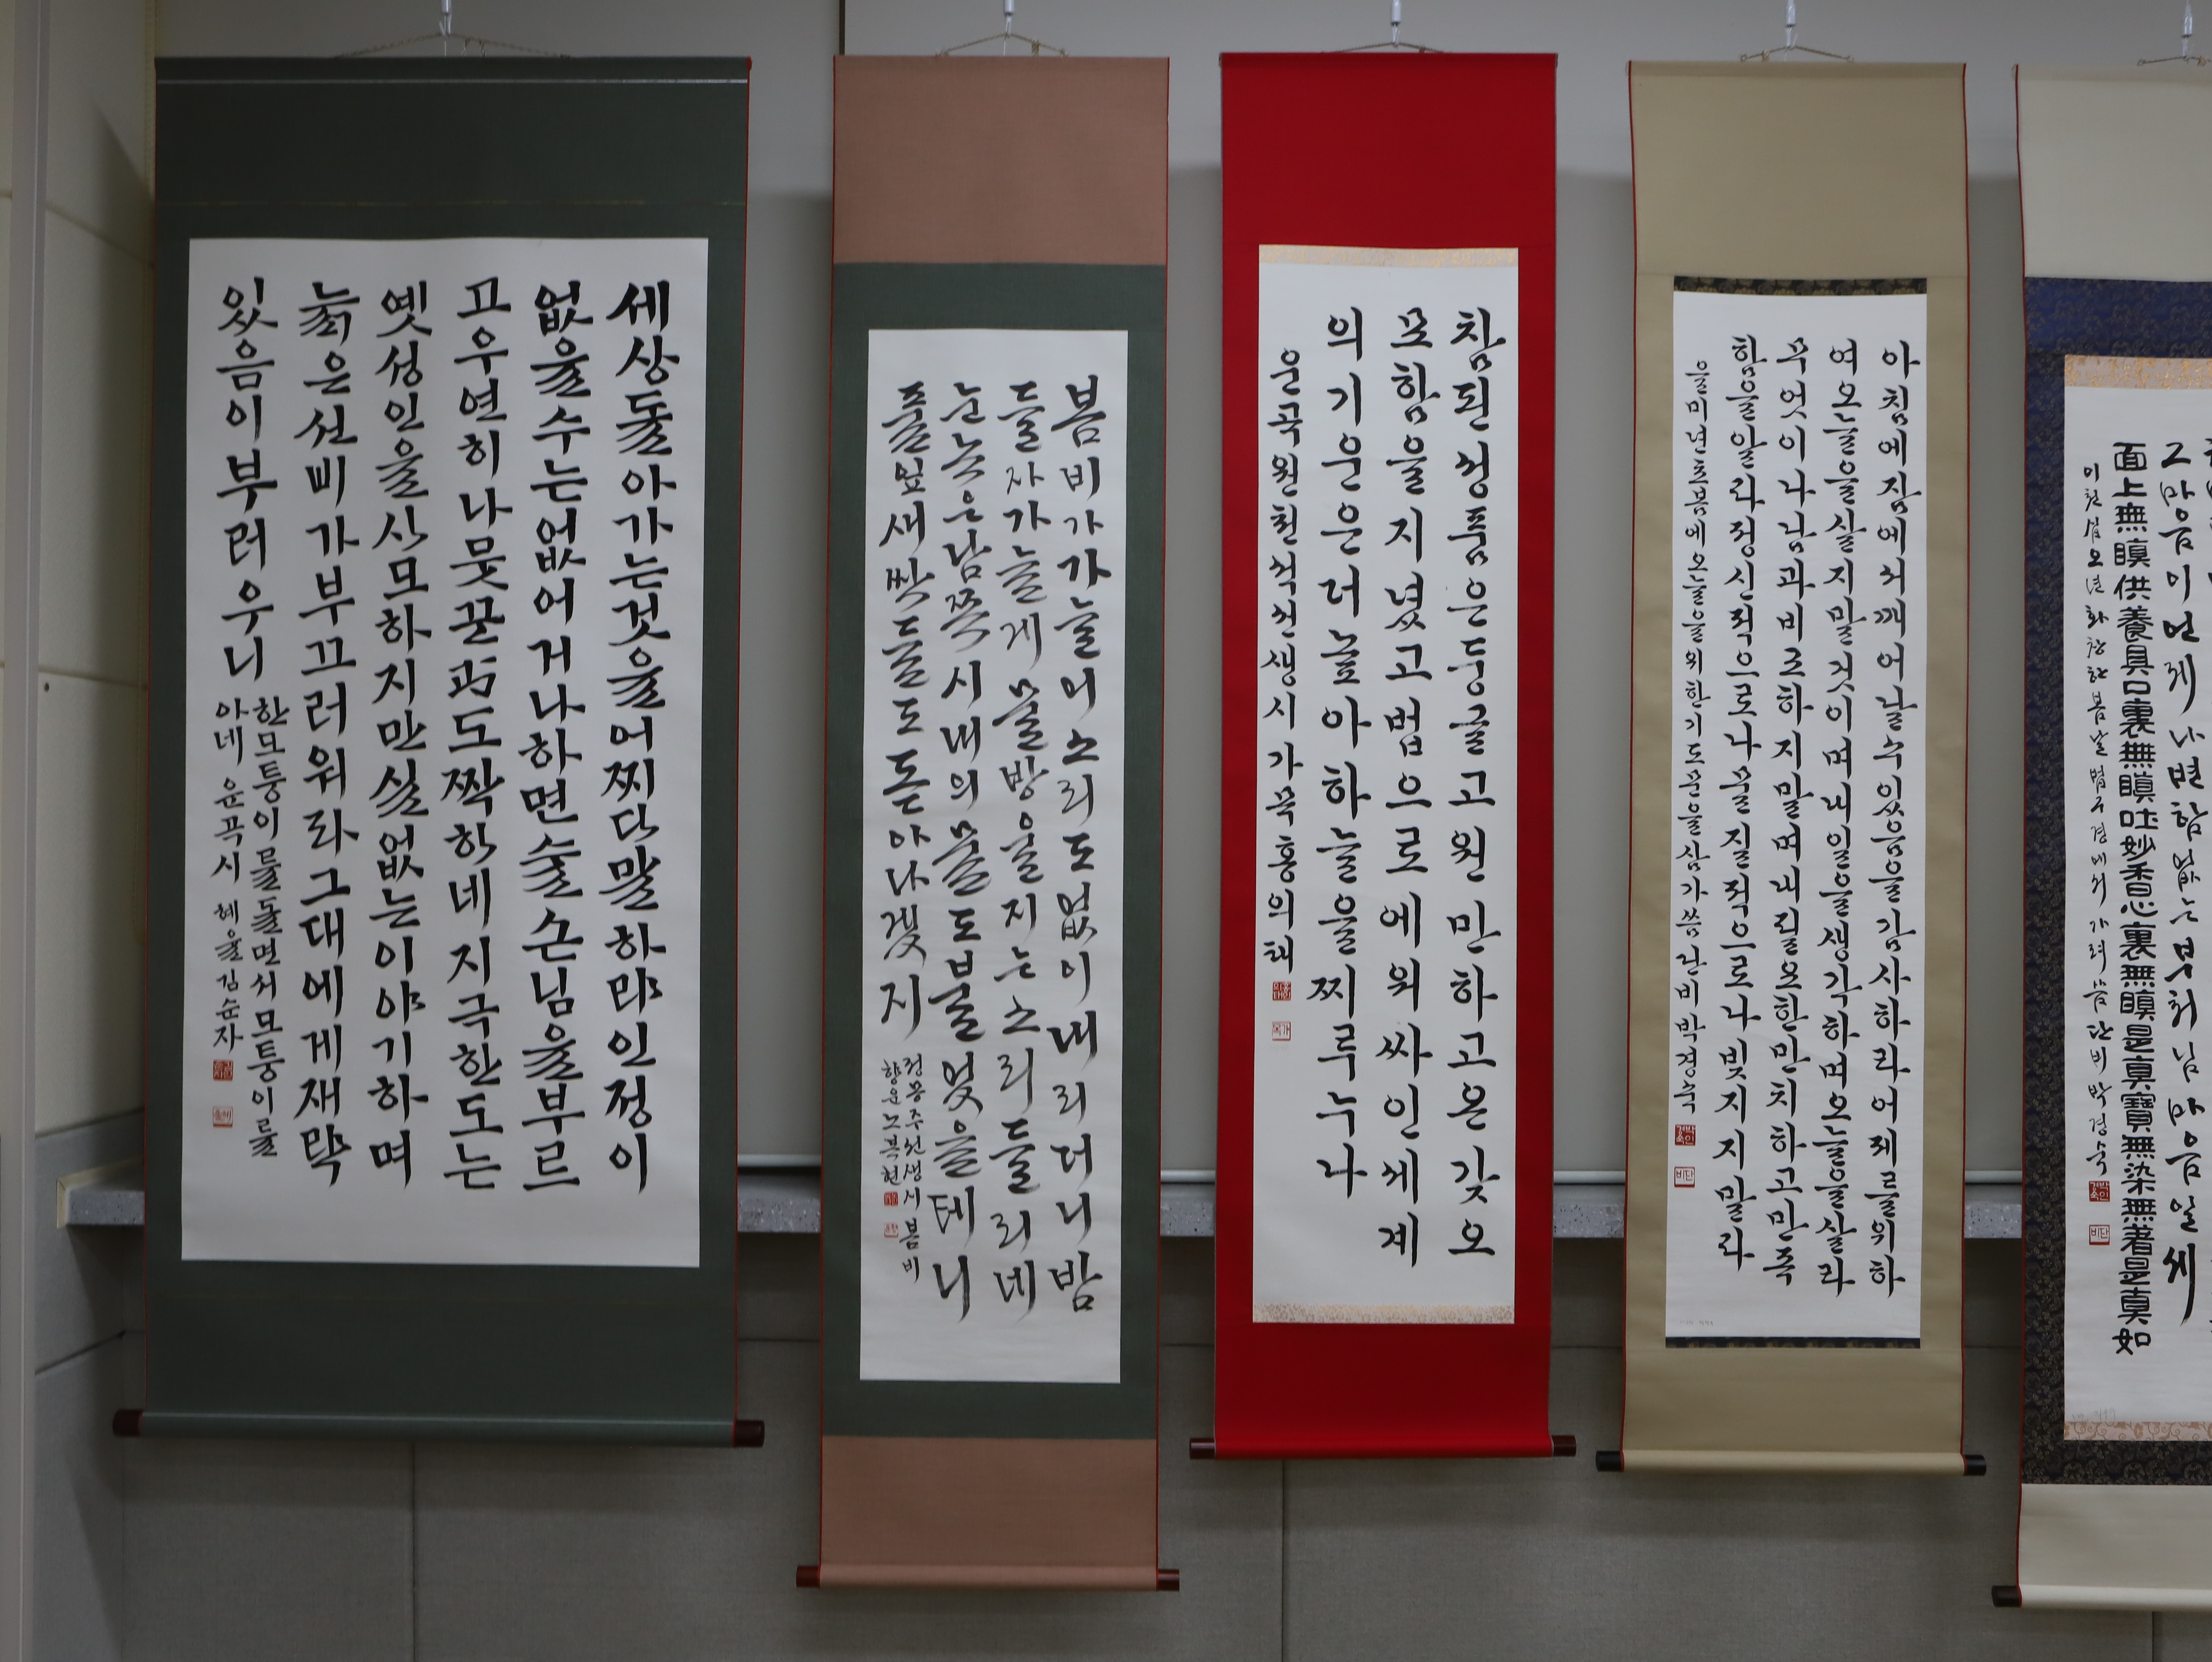 세상돌아가는것을어찌다말하랴인정이
없을수는없어거나하면술손님을부르
고우연히나뭇꾼과도짝핫네지극한도는
옛성인을사모하지만실없는이야기하며
늙은선비가부끄러워라그대에게재략
있음이부러우니
한모퉁이를돌면서모퉁이를
아네 운곡시 혜율김순자
봄비가가늘어소리도없이내리더니밤
들자가늘게물방울지는소리들리네
눈녹은남쪽시내의물도불엇을테니
풀잎새싹들도돋아나겠지
정몽주선생시봄비
향운노복현
참된성품은둥글고원만하고온갖오
묘함을지녔고법으로에워싸인세계
의기운은더높아하늘을찌루누나
운곡원천석선생시가묵홍의태
아침에잠에서깨어날수있음을감사하라어제를위하
여오늘을살지말것이며내일을생각하며오늘을살라
무엇이나남과비교하지말며내필요한만치하고만족
함을알라정신적으로나물질적으로나빚지지말라
을미년초봄에오늘을위한기도문을삼가씀단비박경숙
그마음이언제나변함없는부처님마음일세
面上無瞋供養具口裏無瞋吐妙香心裏無瞋是眞寶無染無著是眞如
이천십오년화창한봄날법구경에서가려씀단비박경숙